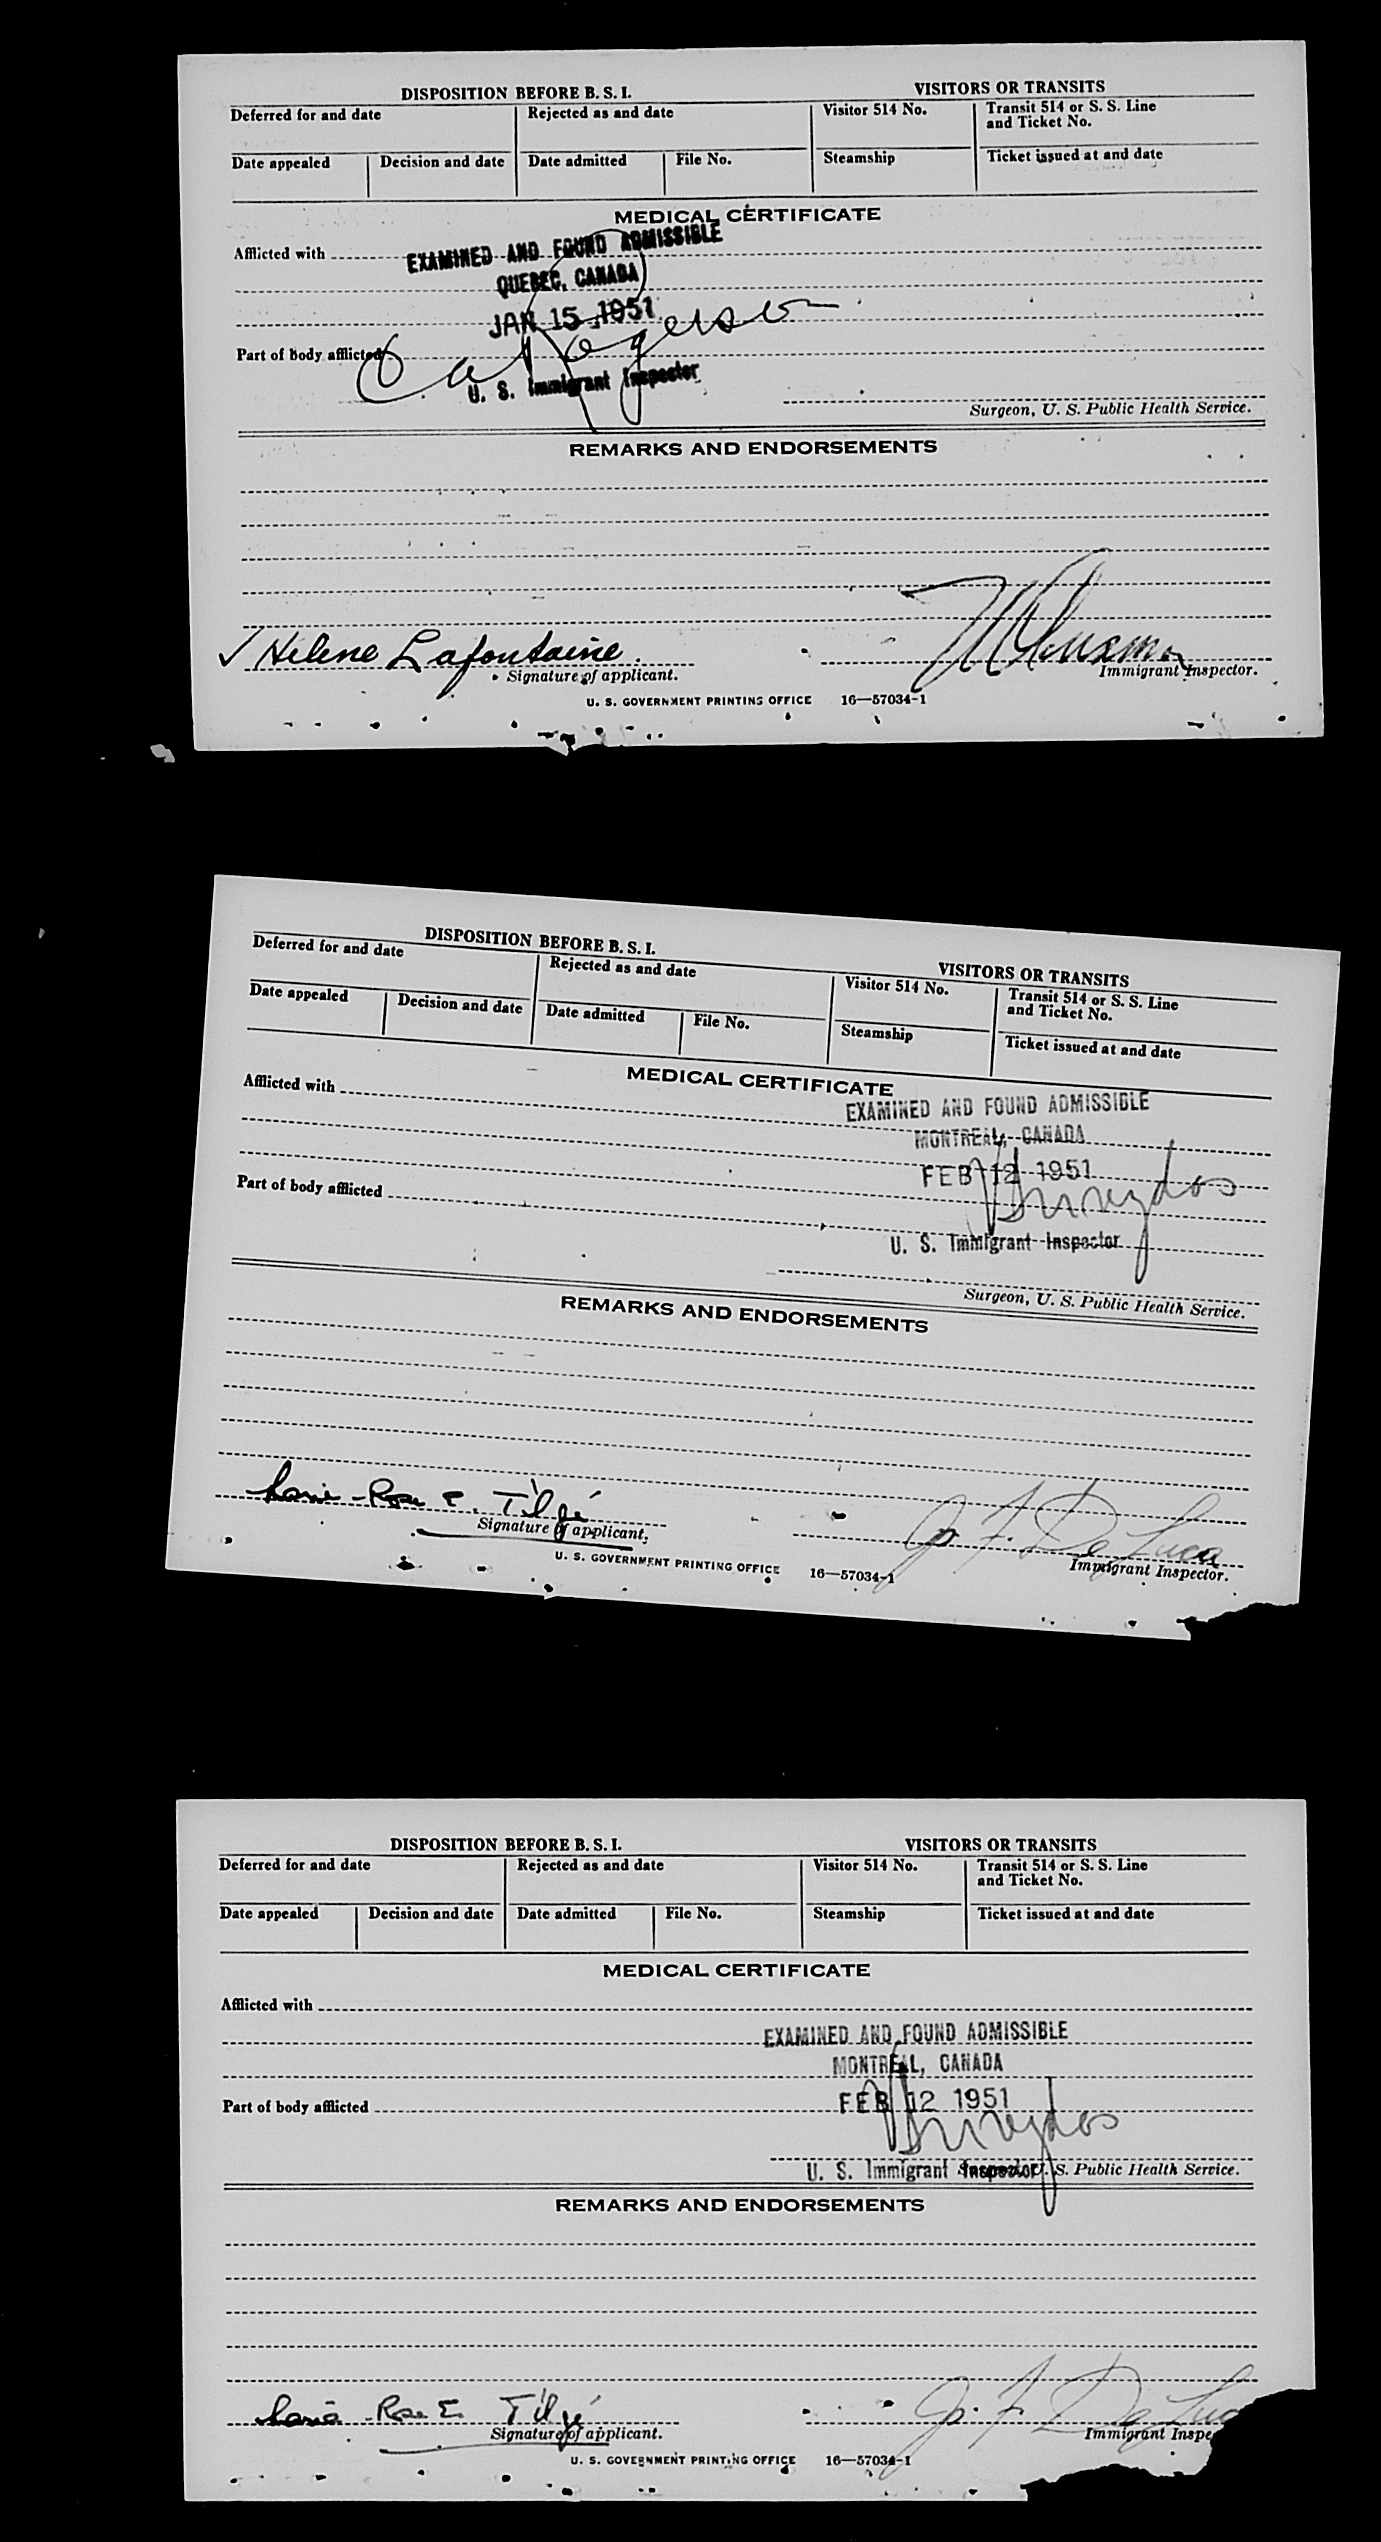 DISPOSITION BEFORE B. S. I. VISITORS OR TRANSITS
Deferred for and date Rejected as and date Visitor 514 No. Transit 514 or S. S. Line
and Ticket No.
Date appealed Decision and date Date admitted File No. Steamship Ticket issued at and date
MEDICAL CERTIFICATE
Afflicted with
EXAMINED AND FOUND ADMISSIBLE
QUEBEC, CANADA
JAN 15 1951
Part of body afflicted
U. S. Immigrant Inspector
Surgeon, U. S. Public Health Service.
REMARKS AND ENDORSEMENTS
Hélène Lafontaine
Signature of applicant. Immigrant Inspector.
U. S. GOVERNMENT PRINTING OFFICE 16—57034-1
DISPOSITION BEFORE B. S. I. VISITORS OR TRANSITS
Deferred for and date Rejected as and date Visitor 514 No. Transit 514 or S. S. Line
and Ticket No.
Date appealed Decision and date Date admitted File No. Steamship Ticket issued at and date
MEDICAL CERTIFICATE
Afflicted with
EXAMINED AND FOUND ADMISSIBLE
MONTREAL, CANADA
FEB 12 1951
Part of body afflicted
U. S. Immigrant Inspector
Surgeon, U. S. Public Health Service.
REMARKS AND ENDORSEMENTS
Marie-Rose E. Jo. F. De Luca
Signature of applicant. Immigrant Inspector.
U. S. GOVERNMENT PRINTING OFFICE 16—57034-1
DISPOSITION BEFORE B. S. I. VISITORS OR TRANSITS
Deferred for and date Rejected as and date Visitor 514 No. Transit 514 or S. S. Line
and Ticket No.
Date appealed Decision and date Date admitted File No. Steamship Ticket issued at and date
MEDICAL CERTIFICATE
Afflicted with
EXAMINED AND FOUND ADMISSIBLE
MONTREAL, CANADA
Part of body afflicted FEB 12 1951
U. S. Immigrant Inspector U. S. Public Health Service.
REMARKS AND ENDORSEMENTS
Marie-Rose E. Jo. F. De Luc
Signature of applicant. Immigrant Inspe
U. S. GOVERNMENT PRINTING OFFICE 16—57034-1